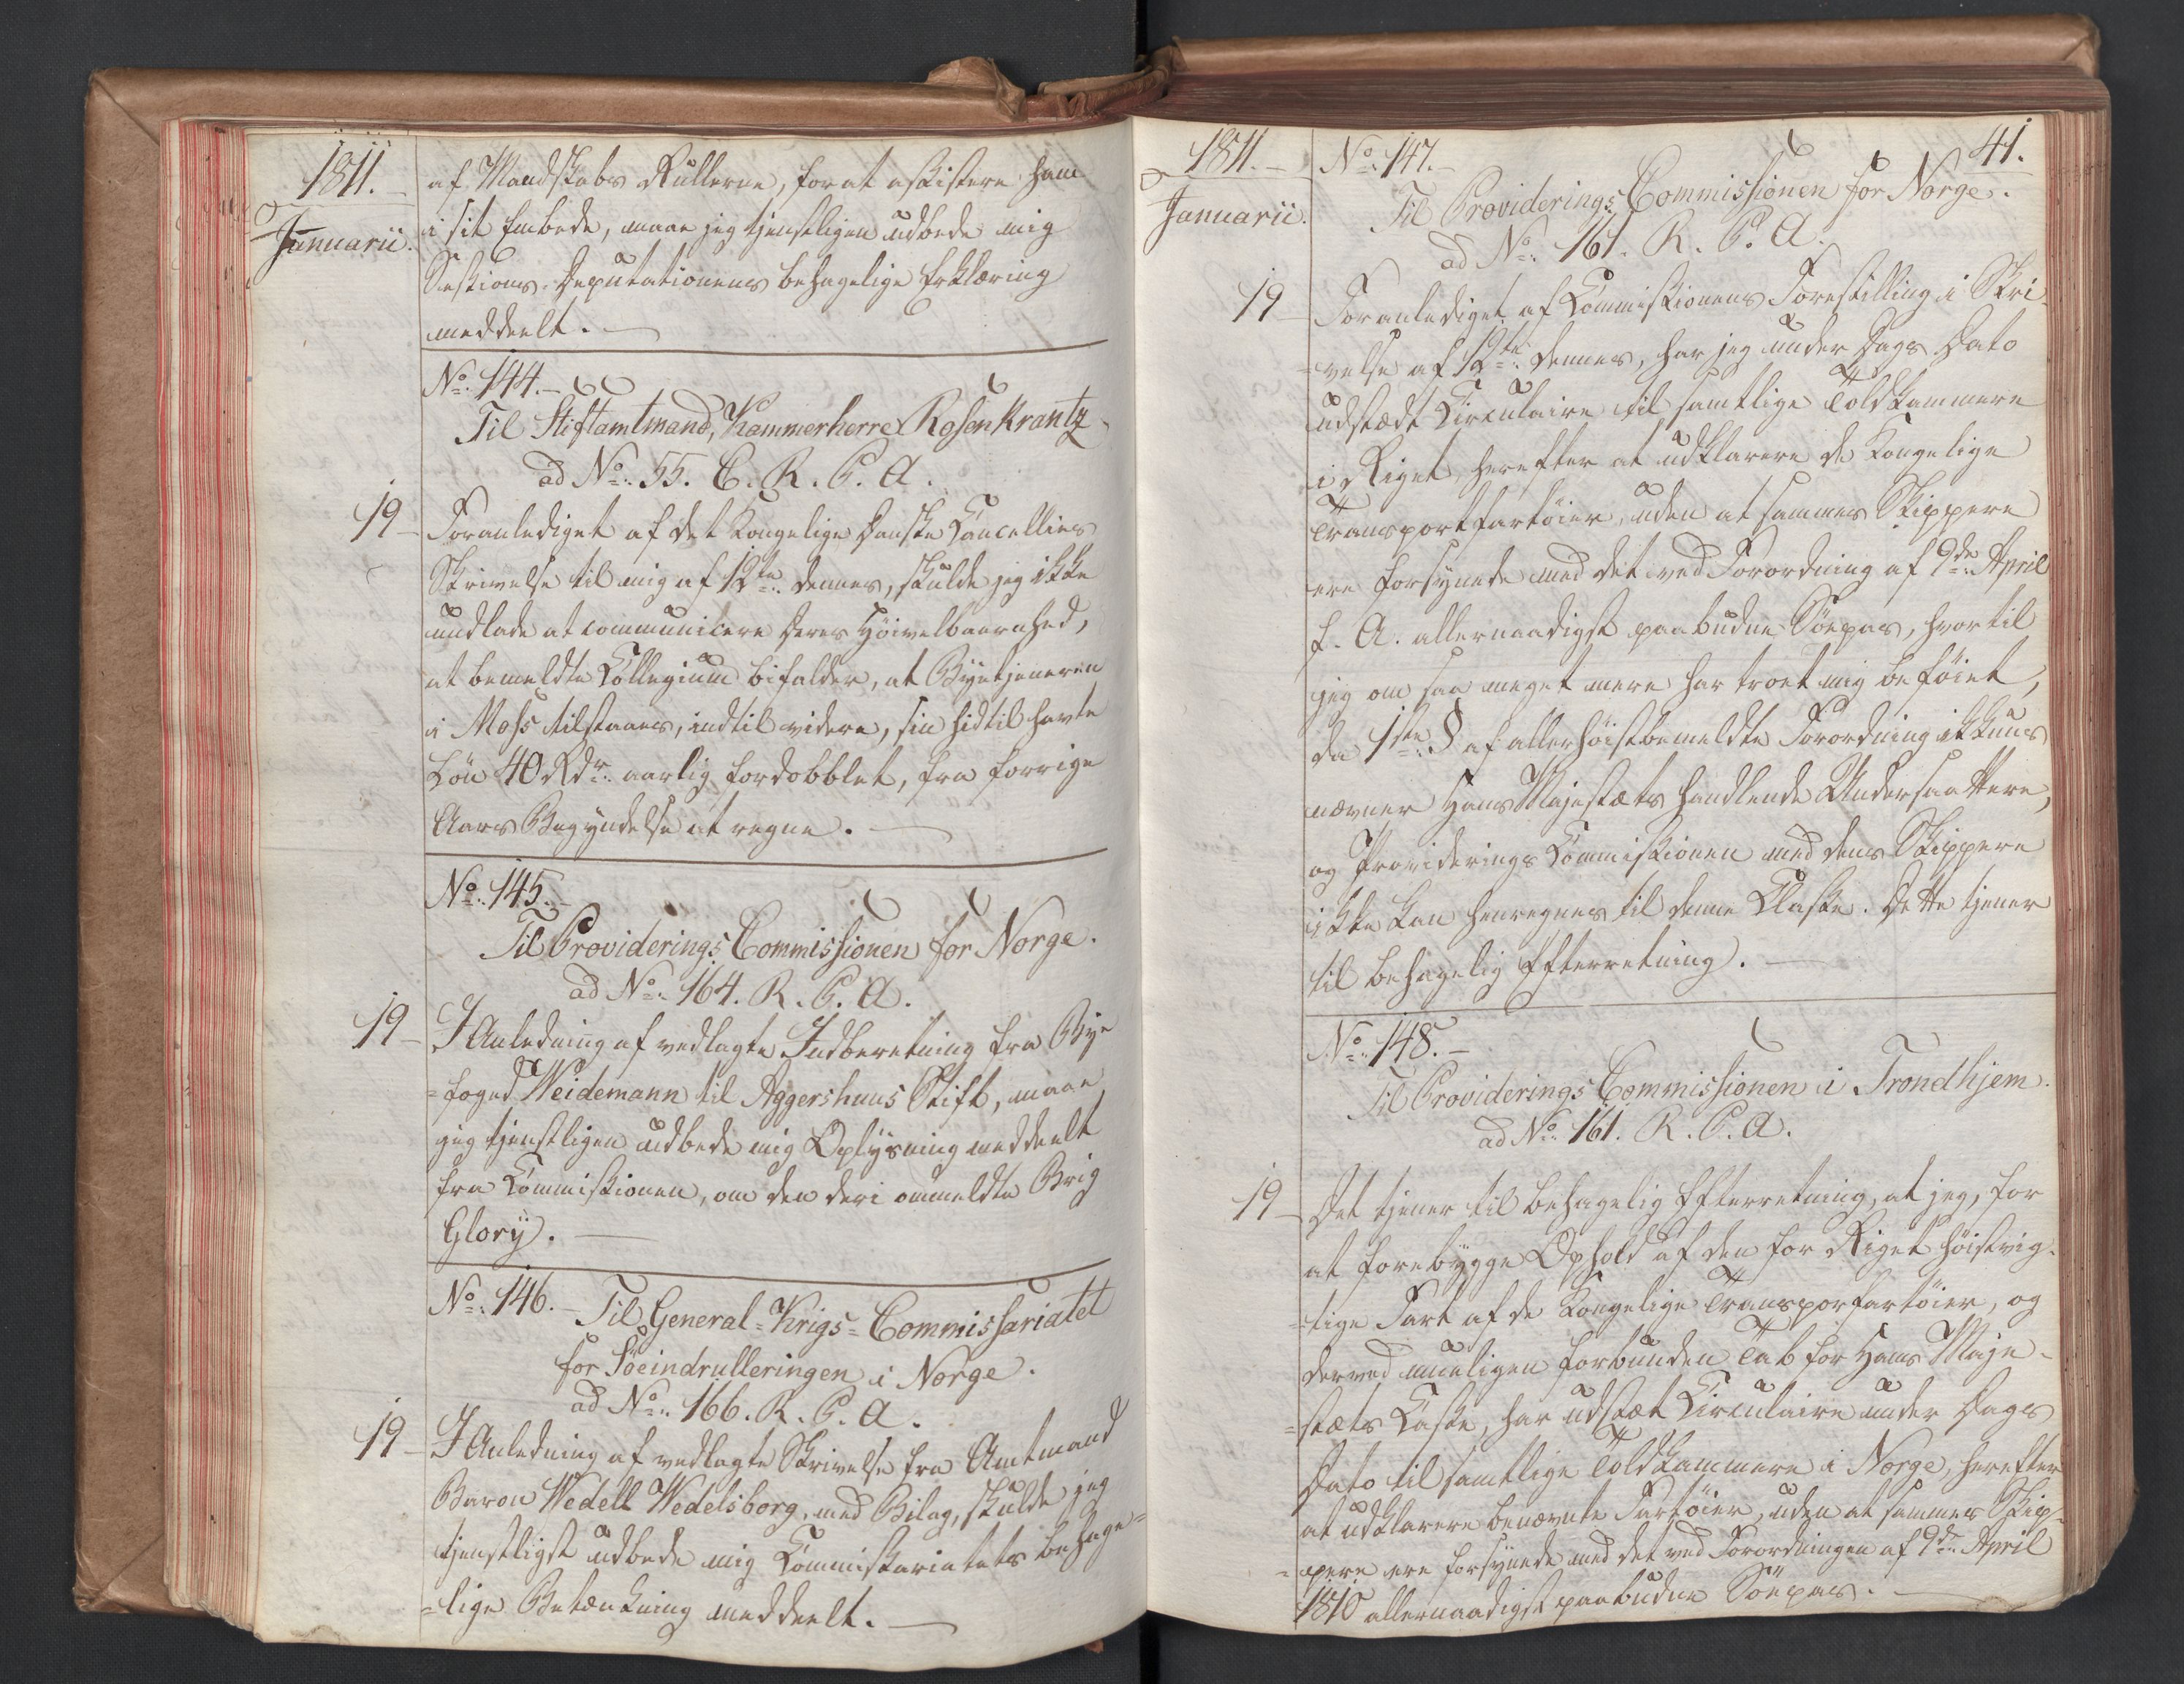 1811.
Januarii.
af Mandskabs Rullerne, for at assistere ham
i sit Embede, maae jeg tjenstligen udbede mig
Sessions-Deputationens behagelige Erklæring
meddeelt.
No: 144.
Til Stiftamtmand, Kammerherre Rosenkrantz
ad No: 55. C. R. P. A.
19 Foranlediget af det Kongelige Danske Cancellies
Skrivelse til mig af 12te dennes, skulde jeg ikke
undlade at communicere Deres Høivelbaarnhed,
at bemeldte Collegium bifalder, at Byetjeneren
i Moss tilstaaes, indtil videre, sin hidtil havte
Løn 40 Rdr: aarlig fordobblet, fra forrige
Aars Begyndelse at regne.
No: 145.
Til Providerings Commissionen for Norge.
ad No: 164. R. P. A.
19 I Anledning af vedlagte Indberetning fra Bye
=foged Weidemann til Aggershuus Stift, maae
jeg tjenstligen udbede mig Oplysning meddeelt
fra Commissionen, om den deri ommeldte Brig
Glory.
No: 146. Til General=Krigs=Commissariatet
for Söeindrulleringen i Norge.
ad No: 166. R. P. A.
19 I Anledning af vedlagte Skrivelse fra Amtmand
Baron Wedell Wedelsborg, med Bilag, skulde jeg
tjenstligst udbede mig Commissariatets behage=
=lige Betænkning meddeelt.
1811.
Januarii.
41.
No: 147.
Til Providerings Commissionen for Norge.
ad No: 161. R. P. A.
19 Foranlediget af Commissionens Forestilling i Skri=
=velse af 12te dennes, har jeg under Dags Dato
udstædt Circulaire til samtlige Toldkammere
i Riget, herefter at udklarere de Kongelige
Transportfartøier, uden at sammes Skippere
ere forsynede med det ved Forordning af 9de April
f. A. allernaadigst paabudne Söepas, hvortil
jeg om saa meget mere har troet mig beføiet,
da 1ste § af allerhøistbemeldte Forordning ikkuns
nævner Hans Majestæts handlende Undersaattere,
og Providerings Commissionen med dens Skippere
ikke kan henregnes til denne Classe. Dette tjener
til behagelig Efterretning.
No: 148.
Til Providerings Commissionen i Trondhjem.
ad No: 161. R. P. A.
19 Det tjener til behagelig Efterretning, at jeg, for
at forebygge Ophold af den for Riget høistvig=
=tige Fart af de Kongelige Transporfartøier, og
derved mueligen forbunden Tab for Hans Maje=
=stæts Casse, har udstæt Circulaire under Dags
Dato til samtlige Toldkammere i Norge, herefter
at udklarere benævnte Fartøier, uden at sammes Skip=
=pere ere forsynede med det ved Forordningen af 9de April
1810 allernaadigst paabudne Söepas.